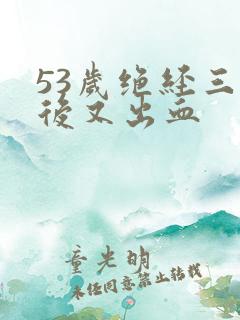 53歲绝経三
後又出血
童光明
未经同意禁止转载